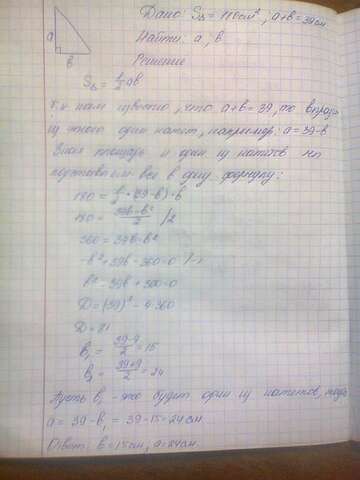 Дано: S△ = 180см²; a+b = 39см
Найти: a, b
a
b
Решение
S△ = 1/2 ab
т.к нам известно, что a+b = 39, то выраз
из этого один катет, например: a = 39-b
Зная площадь и один из катетов
подставим все в одну формулу:
180 = 1/2 · (39-b) · b
180 = (39b-b²)/2 /2
360 = 39b-b²
-b²+39b-360=0 /-1
b²-39b+360=0
D = (39)²-4·360
D = 81
b₁ = (39-9)/2 = 15
b₂ = (39+9)/2 = 24
Пусть b₁ - это будет один из катетов, тогда
a = 39-b₁ = 39-15=24см
Ответ: b=15см, a=24см.